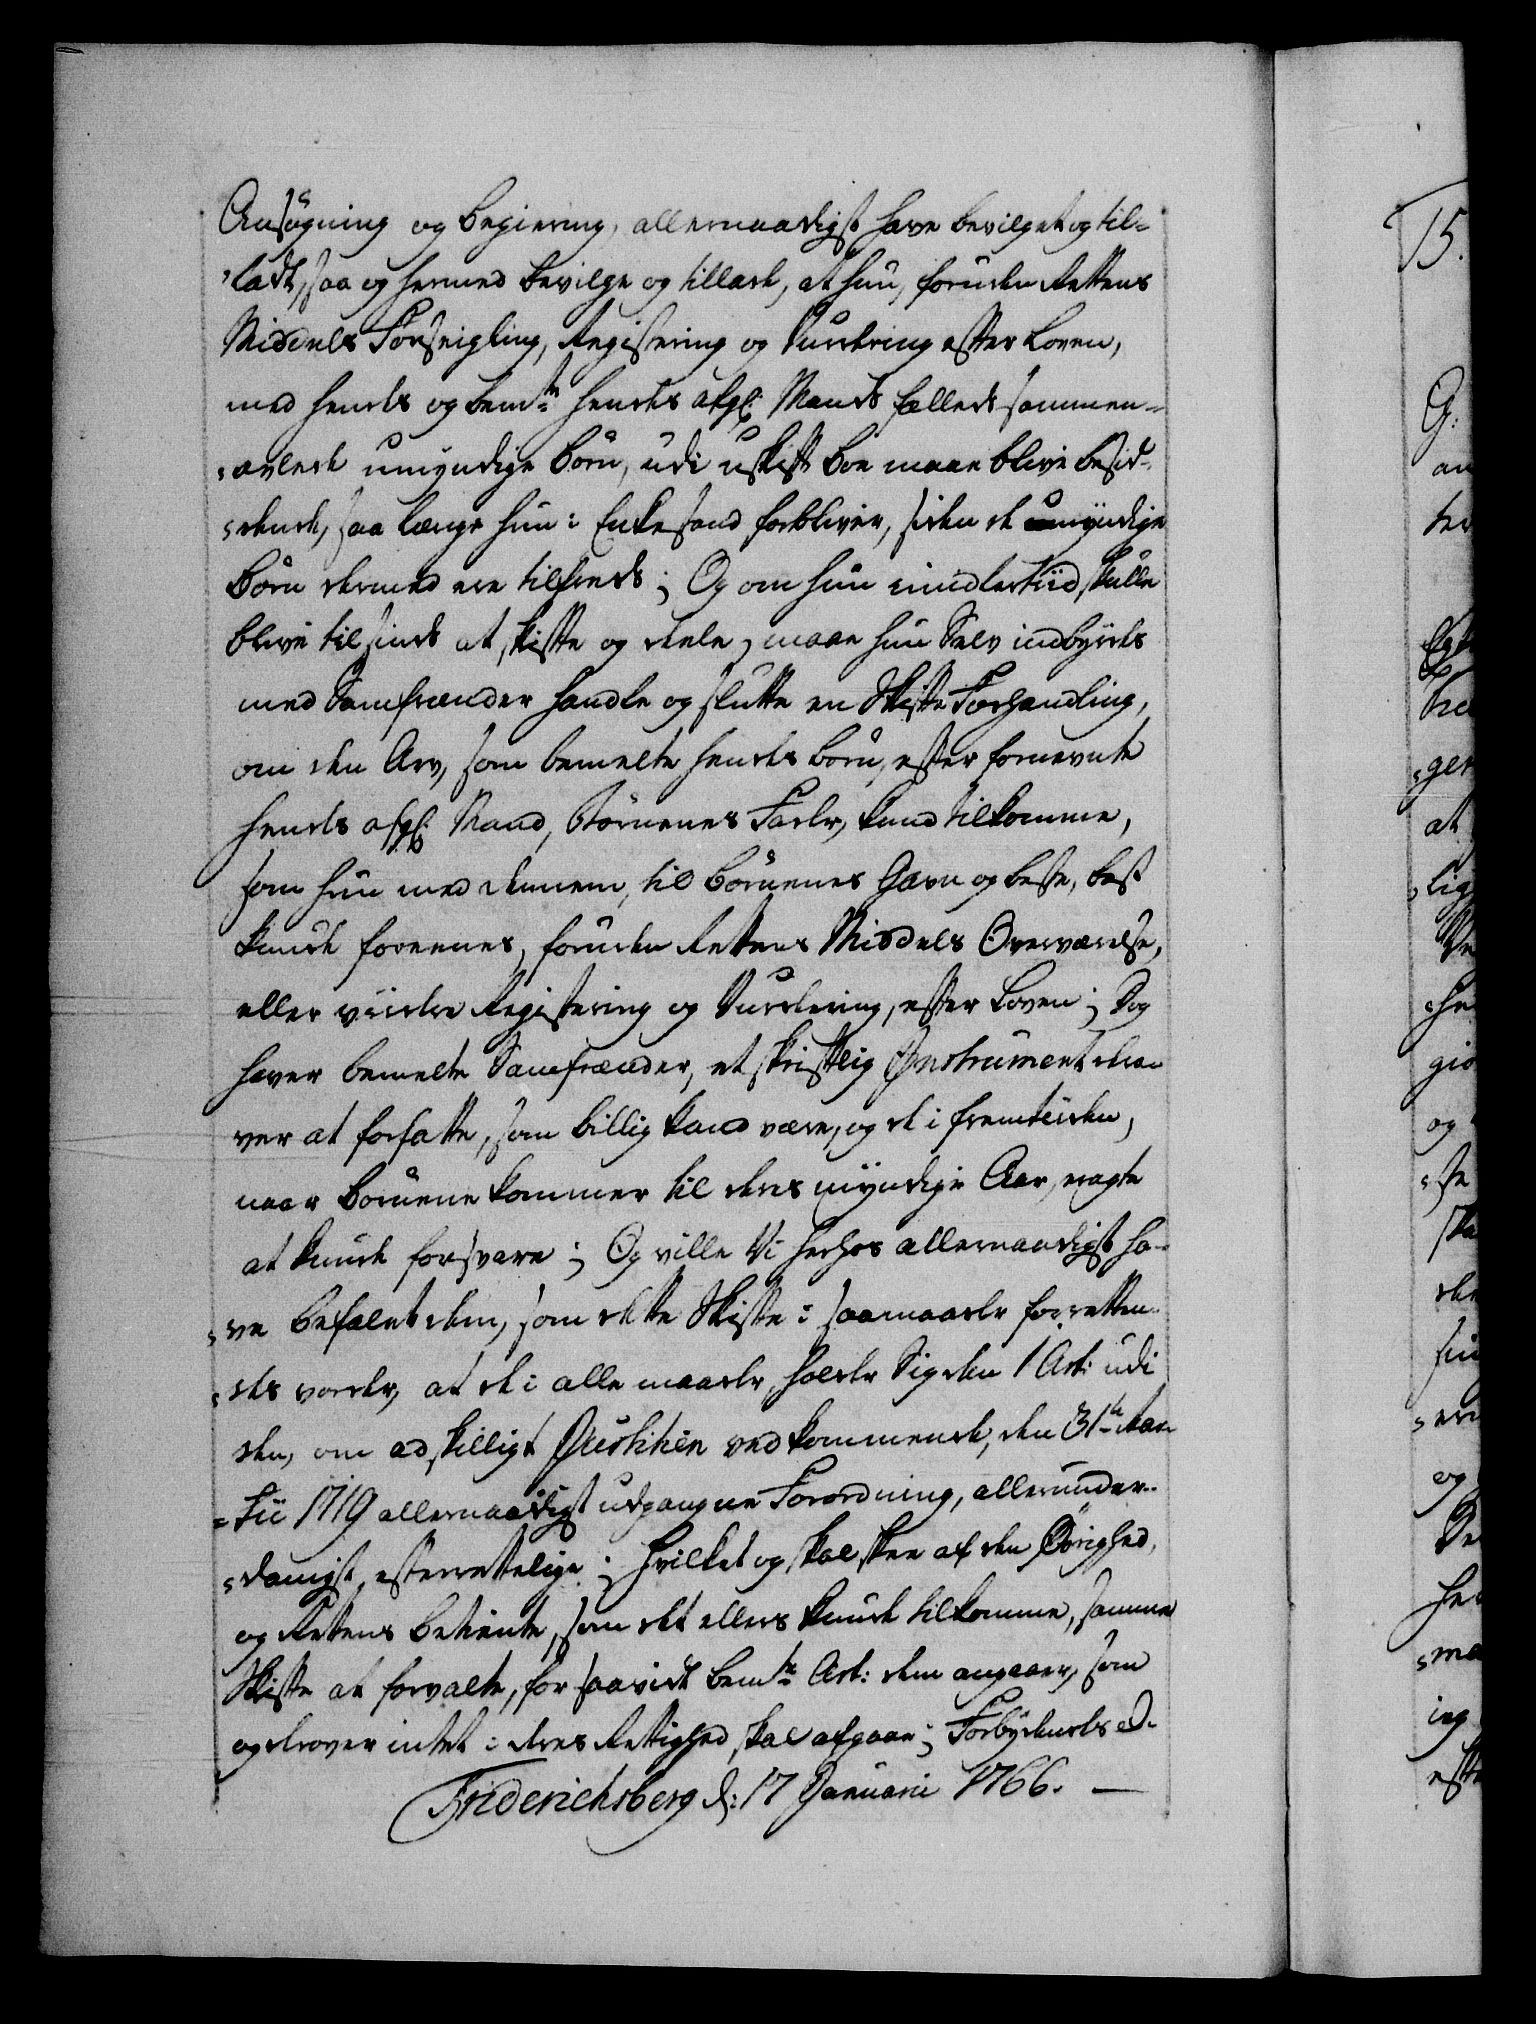 Ansøgning og Begiering, allernaadigst have bevilget og til-
ladt, saa og hermed bevilge og tillade, at hun, foruden Rettens
Middels Forseigling, Registering og Vurdering efter Loven,
med hendes og bemte hendes afgl: Mands fælleds sammen-
avlede umyndige Børn, udi uskift Boe maae blive besid-
dende, saa længe hun i Enkestand forbliver, siden de umyndige
Børn dermed ere tilfreds; Og om hun imidlertiid skulle
blive til sinds at skifte og deele, maae hun Selv indbyrdes
med Samfrænder handle og slutte en Skifte Forhandling,
om den Arv, som bemelte hendes Børn, efter fornevnte
hendes afgl: Mand, Børnenes Fader, kand tilkomme,
som hun med dennem, til Børnenes Gavn og beste, best
kunde foreenes, foruden Rettens Middels Overværelse,
eller viidere Registering og Vurdering, efter Loven; Dog
haver bemelte Samfrænder, et skriftlig Instrument der-
ver at forfatte, som billig kand være, og de i fremtiiden,
naar Børnene kommer til deres myndige Aar, eragte
at kunde forsvare; Og ville Vi herhos allernaadigst ha-
ve befalet dem, som dette Skifte i saamaader forretten-
des vorder, at de i alle maader holder Sig den 1 Art: udi
den, om adskilligt Justitien vedkommende, den 31te Mar-
tii 1719 allernaadigst udgangne Forordning, allerunder-
danigst efterrettelige; hvilket og skal skee af den Øvrighed,
og Rettens Betiente, som det ellers kunde tilkomme, samme
Skifte at forvalte, for saavidt bemte Art: dem angaaer, som
og derover intet i deres Rettighed skal afgaae; Forbydendes &.
Friderichsberg d: 17 Januarii 1766. —
15.
G:
at
og